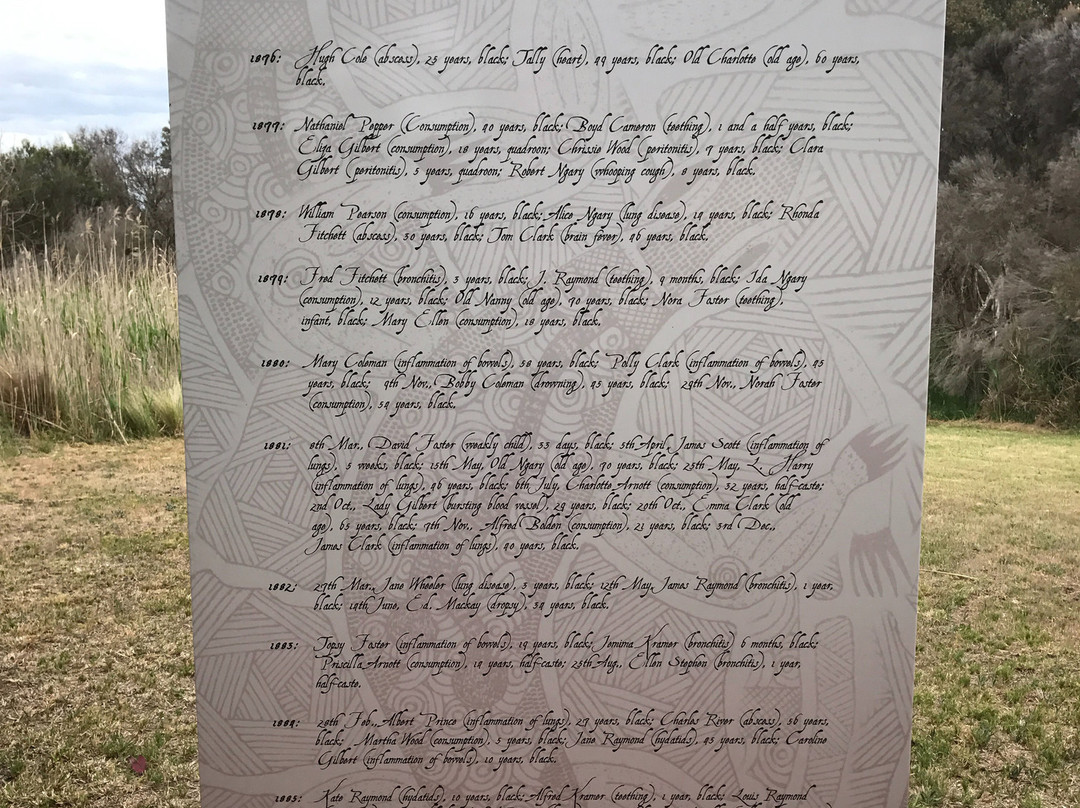 1876: Hugh Cole (abscess), 25 years, black; Tally (heart), 44 years, black; Old Charlotte (old age), 60 years,
black.
1877: Nathaniel Pepper (Consumption), 40 years, black; Boyd Cameron (teething), 1 and a half years, black;
Eliza Gilbert (consumption), 18 years, quadroon; Chrissie Wood (peritonitis), 7 years, black; Clara
Gilbert (peritonitis), 5 years, quadroon; Robert Ngary (whooping cough), 8 years, black.
1878: William Pearson (consumption), 16 years, black; Alice Ngary (lung disease), 14 years, black; Rhonda
Fitchett (abscess), 30 years, black; Tom Clark (brain fever), 46 years, black.
1879: Fred Fitchett (bronchitis), 3 years, black; J. Raymond (teething), 9 months, black; Ida Ngary
(consumption), 12 years, black; Old Nanny (old age), 70 years, black; Nora Foster (teething),
infant, black; Mary Ellen (consumption), 18 years, black.
1880: Mary Coleman (inflammation of bowels), 58 years, black; Polly Clark (inflammation of bowels), 45
years, black; 9th Nov., Bobby Coleman (drowning), 45 years, black; 29th Nov., Norah Foster
(consumption), 34 years, black.
1881: 8th Mar., David Foster (weakly child), 33 days, black; 5th April, James Scott (inflammation of
lungs), 5 weeks, black; 15th May, Old Ngary (old age), 70 years, black; 25th May, L. Harry
(inflammation of lungs), 46 years, black; 6th July, Charlotte Arnott (consumption), 32 years, half-caste;
2nd Oct., Lady Gilbert (bursting blood vessel), 29 years, black; 20th Oct., Emma Clark (old
age), 65 years, black; 7th Nov., Alfred Bolden (consumption), 21 years, black; 3rd Dec.,
James Clark (inflammation of lungs), 40 years, black.
1882: 27th Mar., Jane Wheeler (lung disease), 3 years, black; 12th May, James Raymond (bronchitis), 1 year,
black; 14th June, Ed. Mackay (dropsy), 34 years, black.
1883: Topsy Foster (inflammation of bowels), 19 years, black; Jemima Kramer (bronchitis) 6 months, black;
Priscilla Arnott (consumption), 14 years, half-caste; 25th Aug., Ellen Stephen (bronchitis), 1 year,
half-caste.
1884: 28th Feb., Albert Prince (inflammation of lungs), 27 years, black; Charles River (abscess), 56 years,
black; Martha Wood (consumption), 5 years, black; Jane Raymond (hydatids), 45 years, black; Caroline
Gilbert (inflammation of bowels), 10 years, black.
1885: Kate Raymond (hydatids), 10 years, black; Alfred Kramer (teething), 1 year, black; Louis Raymond